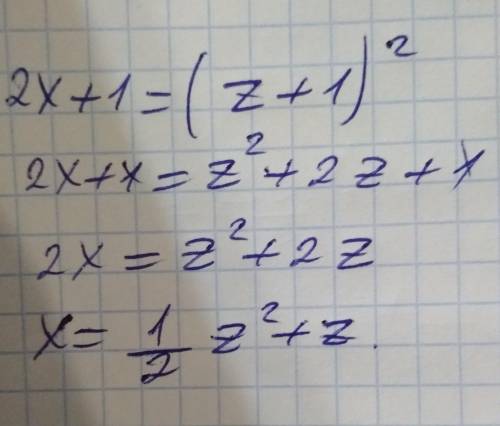 2x+1=(z+1)²
2x+1=z²+2z+1
2x=z²+2z
x=1/2 z²+z.